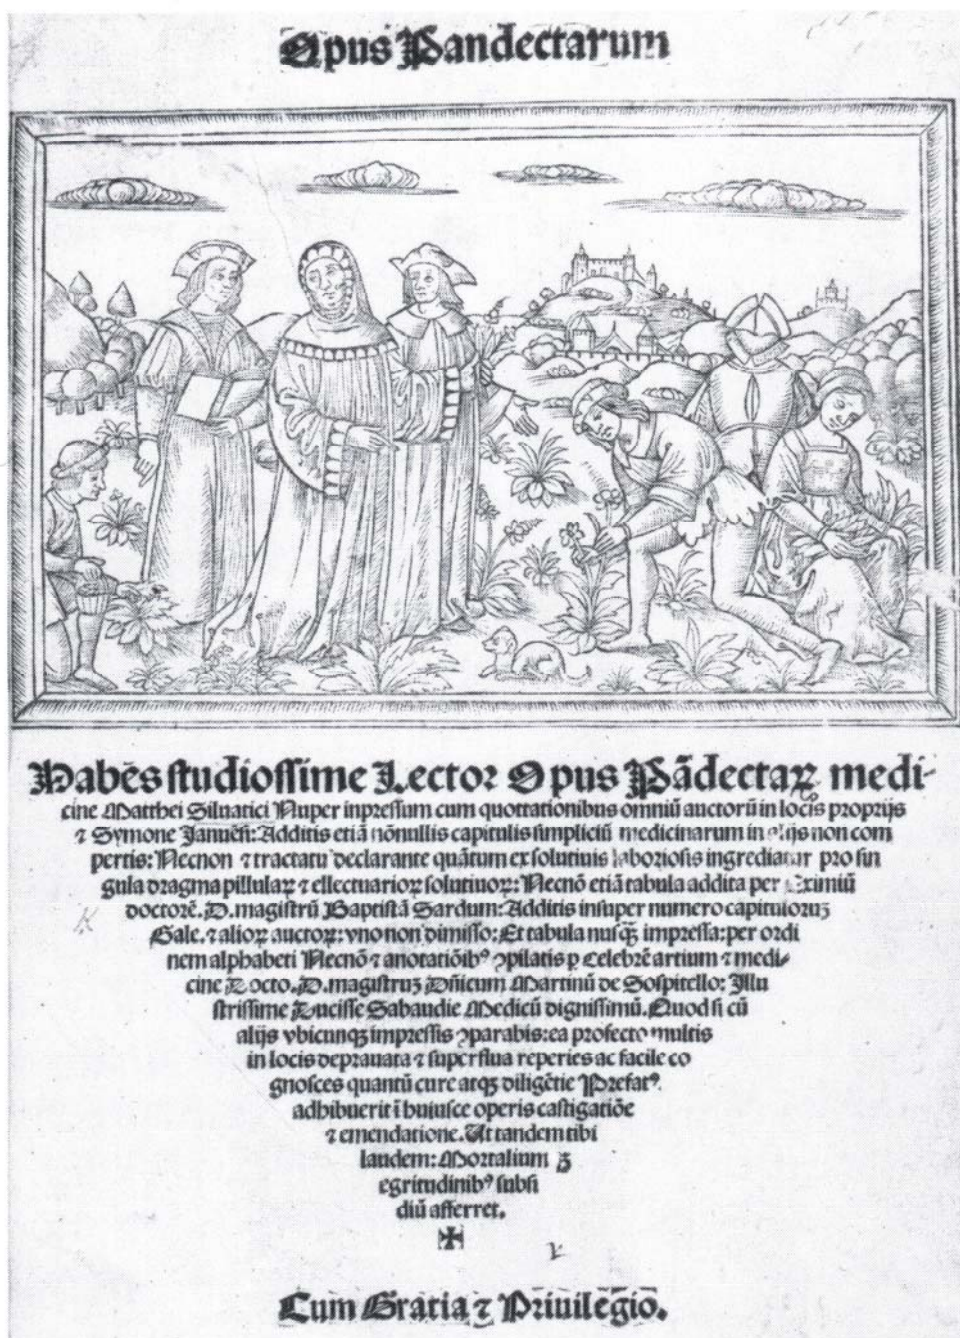 Opus Pandectarum
Habēs studiossime Lector Opus Pādectaꝝ medi-
cine Matthei Siluatici Nuper inpressum cum quottationibus omniū auctorū in locis proprijs
⁊ Symone Januēñ: Additis etiā nōnullis capitulis simpliciū medicinarum in alijs non com
pertis: Necnon ⁊ tractatu declarante quātum ex solutiuis laboriosis ingrediatur pro sin
gula dragma pillulaꝝ ⁊ ellectuarioꝝ solutiuoꝝ: Necnō etiā tabula addita per Eximiū
doctorē. D. magistrū Baptistā Sardum: Additis insuper numero capituloruꝫ
Gale. ⁊ alioꝝ auctoꝝ: vno non dimisso: Et tabula nusqꝫ impressa: per ordi
nem alphabeti Necnō ⁊ anotatiōibꝰ ꝯpilatis ꝑ celebrē artium ⁊ medi-
cine Docto. D. magistruꝫ Dñicum Martinū de Sospitello: Illu
strissime Ducisse Sabaudie Medicū dignissimū. Quod si cū
alijs vbicunqꝫ impressis ꝯparabis: ea profecto multis
in locis deprauata ⁊ superflua reperies ac facile co
gnosces quantū cure atqꝫ diligētie Prefatꝰ.
adhibuerit ī huiusce operis castigatiōe
⁊ emendatione. At tandem tibi
laudem: Mortalium ꝫ
egritudinibꝰ subsi
diū afferret.
✠
Cum Gratia ⁊ Priuilegio.